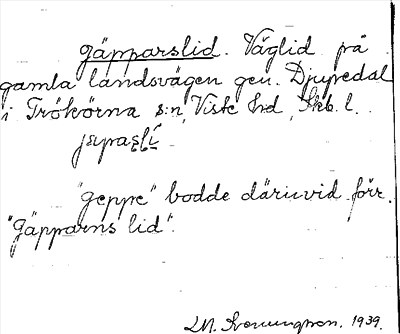 Gäpparslid. Väglid på
gamla landsvägen gen. Djupedal
i Trökörna s:n, Viste hd, Skb. l.
"geppe" bodde därinvid förr.
"Gäpparns lid".
1939.